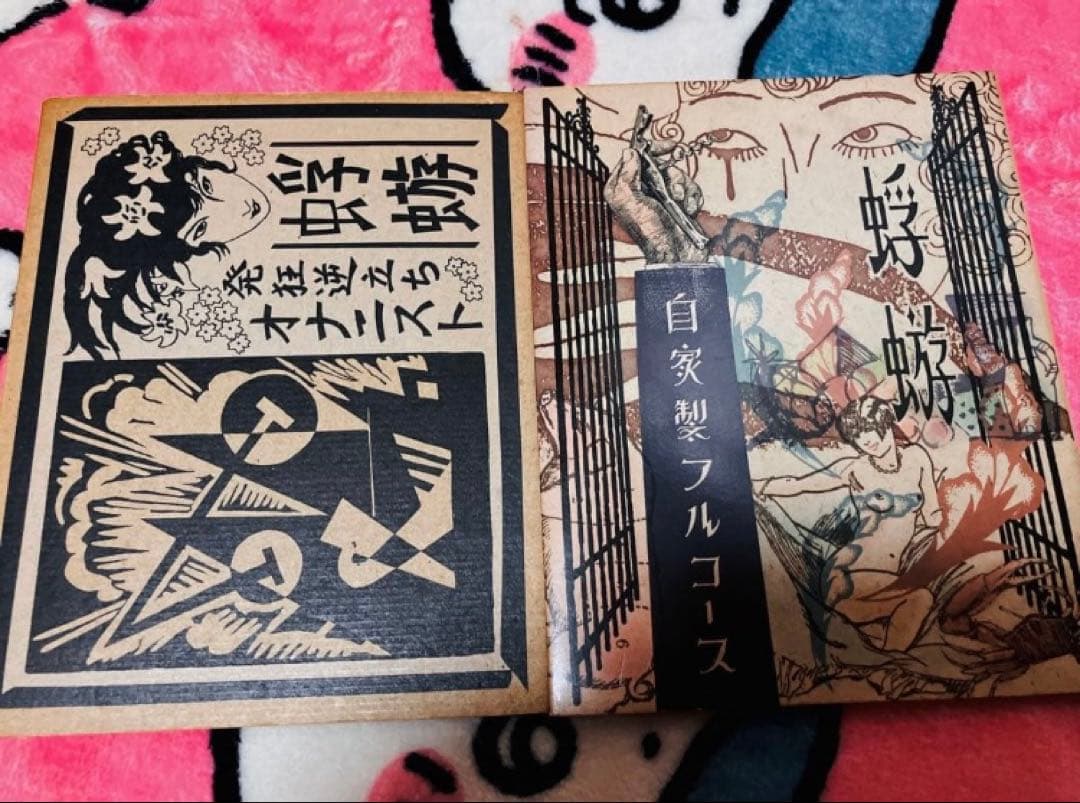 蜉蝣
発狂逆立ち
オナニスト
蜉蝣
自家製フルコース